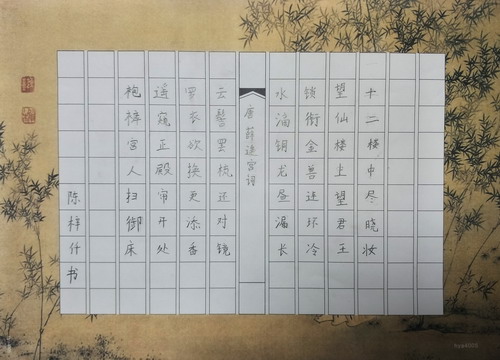 十二楼中尽晓妆
望仙楼上望君王
锁衔金兽连环冷
水滴铜龙昼漏长
唐薛逢宫词
云髻罢梳还对镜
罗衣欲换更添香
遥窥正殿帘开处
袍裤宫人扫御床
陈梓什书